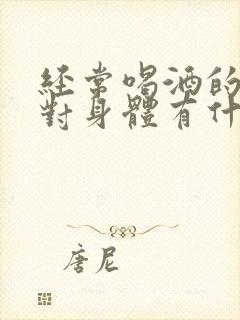 經常喝酒的
對身體有什
唐尼